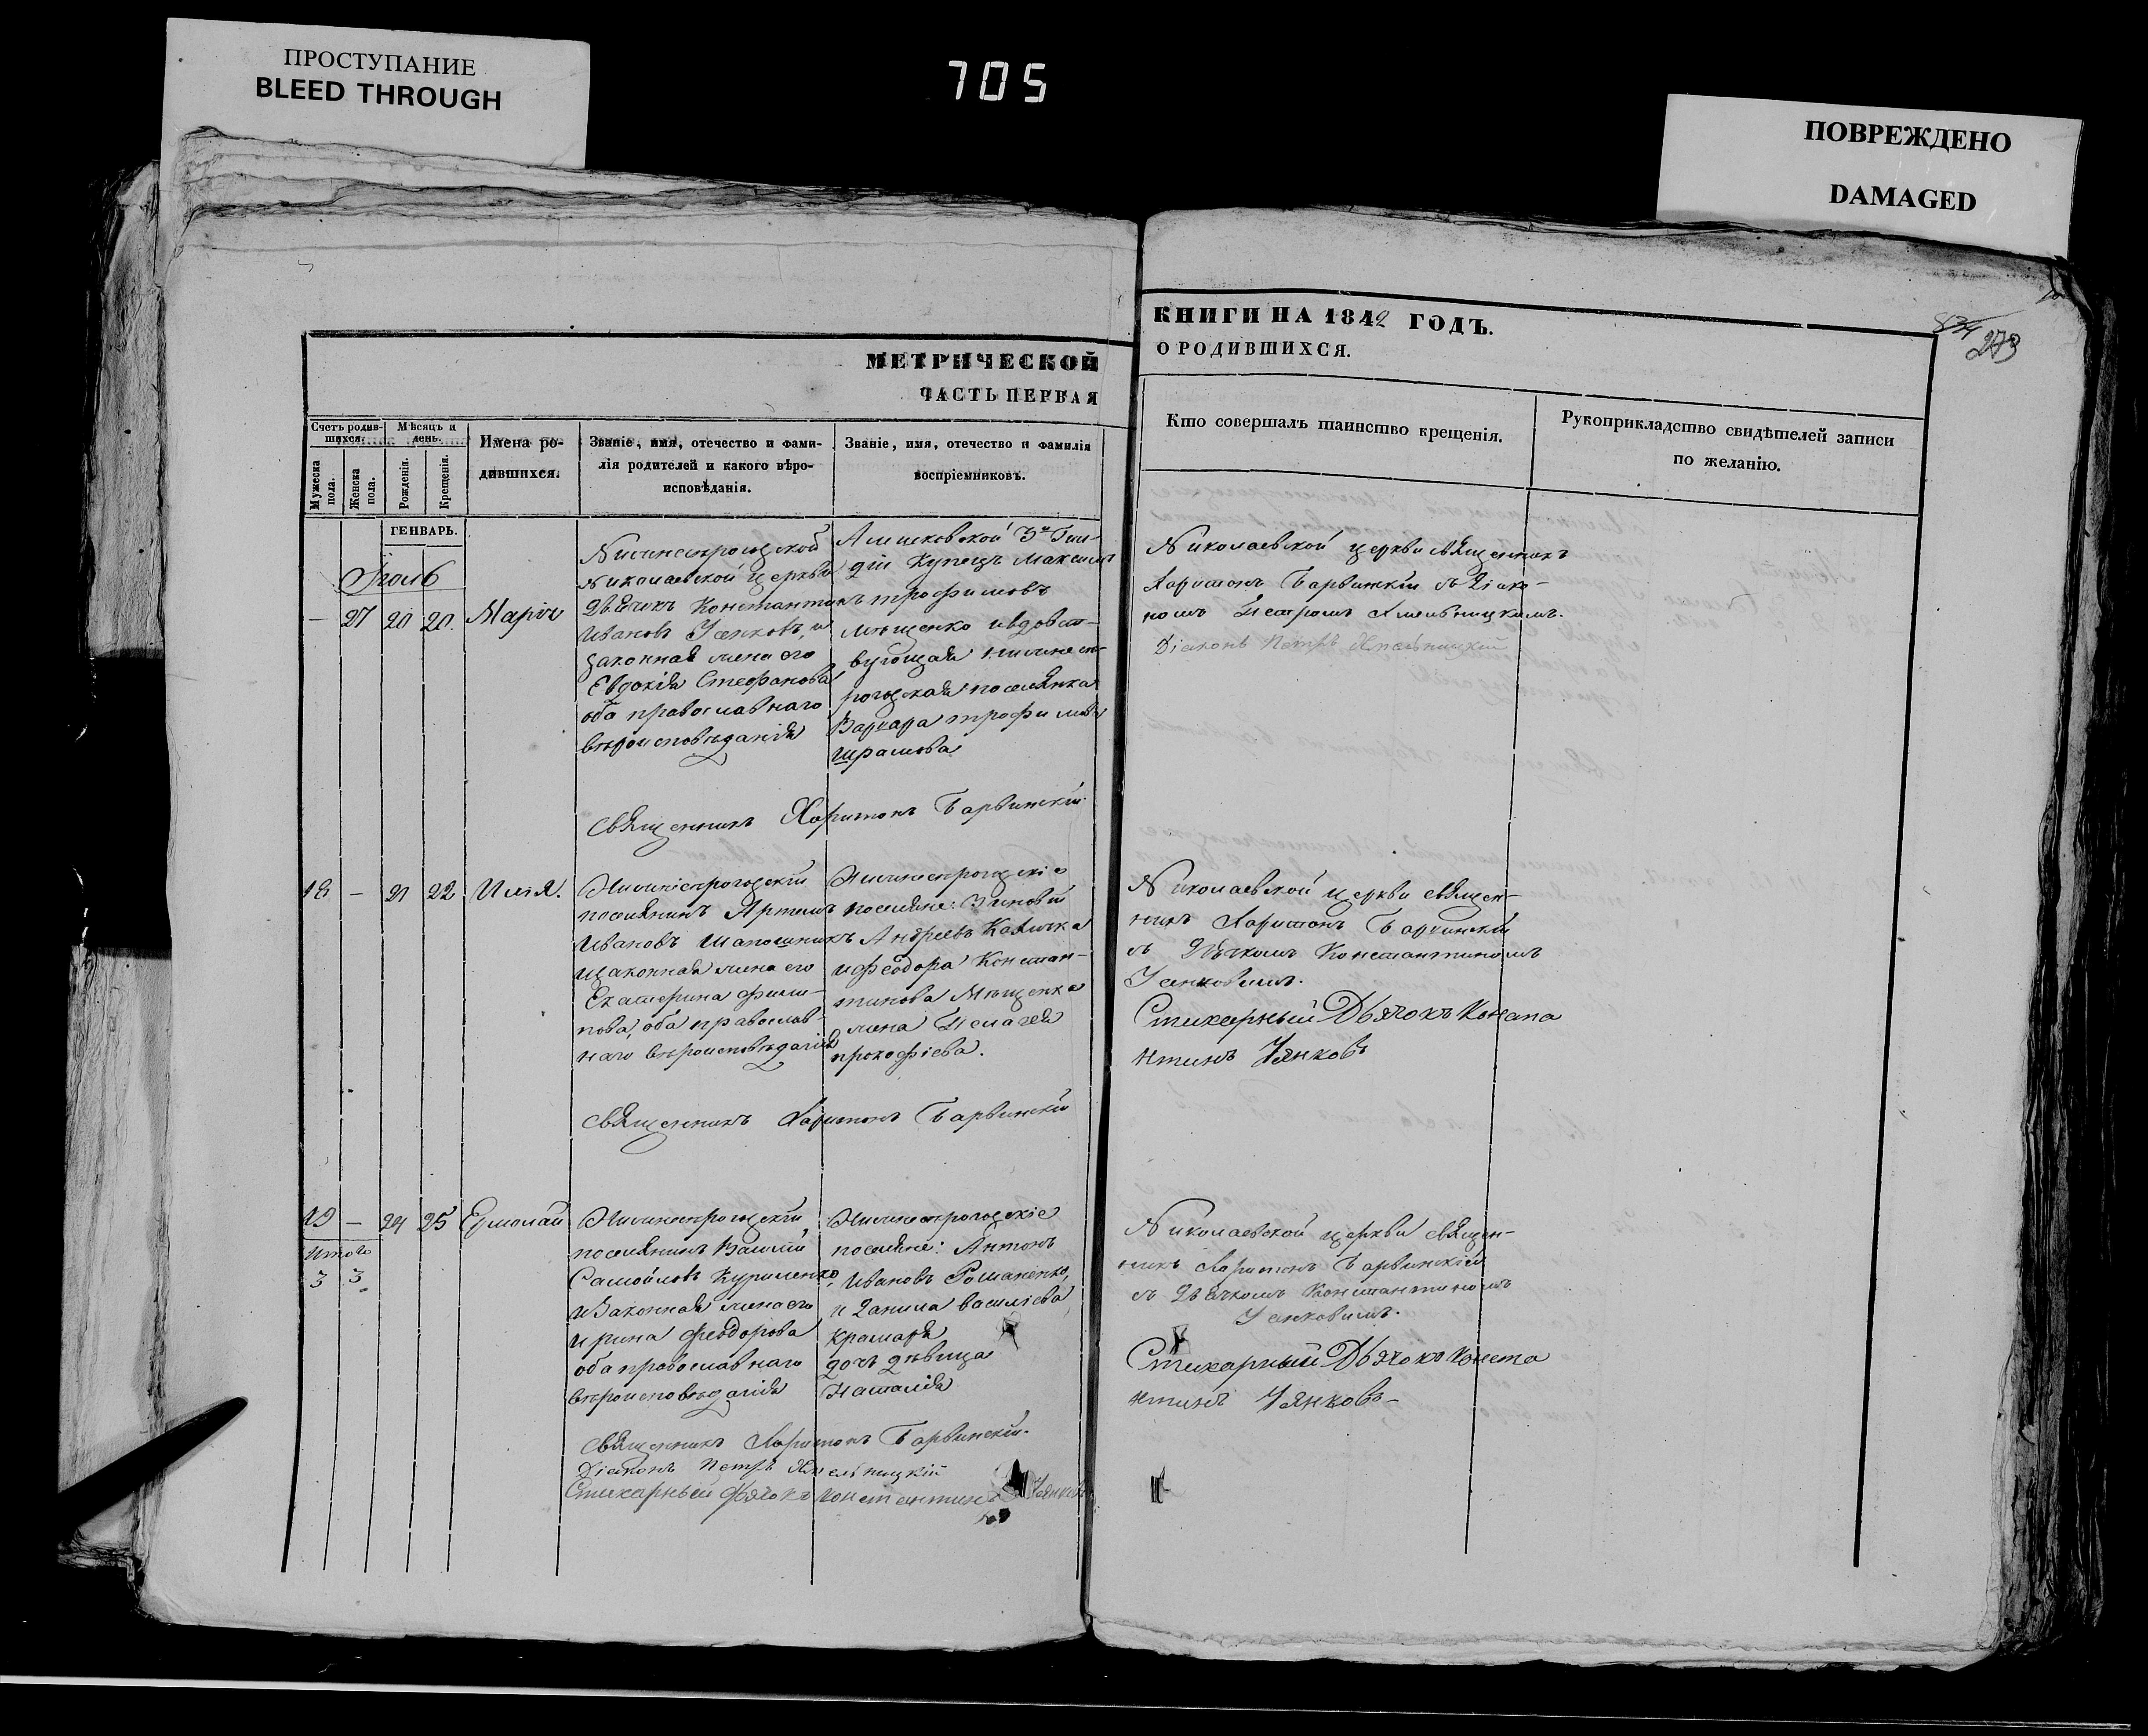 ПРОСТУПАНИЕ
BLEED THROUGH
705
ПОВРЕЖДЕНО
DAMAGED
МЕТРИЧЕСКОЙ
ЧАСТЬ ПЕРВАЯ
Счетъ родив-
шихся.
Мужеска
пола.
Женска
пола.
Мѣсяцъ и
день.
Рожденія.
Крещенія.
Имена ро-
дившихся.
Званіе, имя, отечество и фами-
лія родителей и какого вѣро-
исповѣданія.
Званіе, имя, отечество и фамилія
воспріемниковъ.
КНИГИ НА 1842 ГОДЪ.
О РОДИВШИХСЯ.
273
Кто совершалъ таинство крещенія.
Рукоприкладство свидѣтелей записи
по желанію.
ГЕНВАРЬ.
— 27 20 20 Марія
Николаевской церкви
Дьячекъ Константинъ
Ивановъ Усенковъ, и
законная жена его
Евдокія Стефанова
оба православнаго
вѣроисповѣданія
Купецъ Максимъ
Трофимовъ
Мищенко и вдовст-
вующая
поселянка
Варвара Трофимова
Шрамова
Николаевской церкви священникъ
Харитонъ Барвинскій съ Діако-
номъ Петромъ Хмельницкимъ.
Діаконъ Петръ Хмельницкій
Священникъ Харитонъ Барвинскій
18 — 21 22 Илія.
поселянинъ Артемъ
Ивановъ Шапошникъ
и законная жена его
Екатерина Фили-
пова, оба православ-
наго вѣроисповѣданія
поселяне: Зиновій
Андреевъ
и Феодора Констан-
тинова Мищенка
жена
Прокофіева.
Николаевской церкви священ-
никъ Харитонъ Барвинскій
съ Дьячкомъ Константиномъ
Усенковимъ.
Стихарный Дьячокъ Конста
нтинъ Усянковъ
Священникъ Харитонъ Барвинскій
19 — 24 25 Ермолай
Итого
3 3
поселянинъ Василій
Самойловъ Куриленко,
и законная жена его
Ирина Феодорова
оба православнаго
вѣроисповѣданія
поселяне: Антонъ
Ивановъ Романенко,
и Данила Василіева
Крамаря
дочь дѣвица
Наталія
Николаевской церкви священ-
никъ Харитонъ Барвинскій
съ Дьячкомъ Константиномъ
Усенковимъ.
Стихарный Дьячокъ Конста
нтинъ Усянковъ
Священникъ Харитонъ Барвинскій.
Діаконъ Петръ Хмельницкій
Стихарный Дьячокъ Константинъ